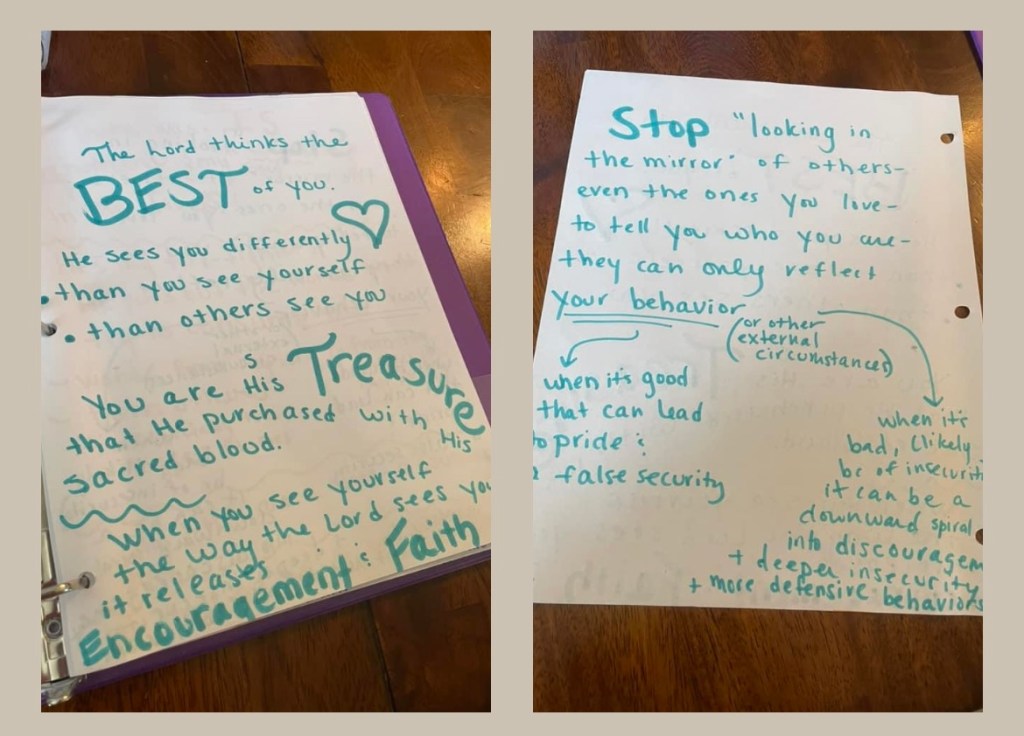 The Lord thinks the
BEST of you.
He sees you differently
• than you see yourself
• than others see you
s
You are His Treasure
that He purchased with His
sacred blood.
When you see yourself
the way the Lord sees you
it releases
Encouragement & Faith
Stop "looking in
the mirror" of others-
even the ones you love-
to tell you who you are-
they can only reflect
your behavior
(or other
external
circumstances)
when it's good
that can lead
to pride &
a false security
when it's
bad, (likely
bc of insecurit
it can be a
downward spiral
into discouragem
+ deeper insecurity
+ more defensive behaviors